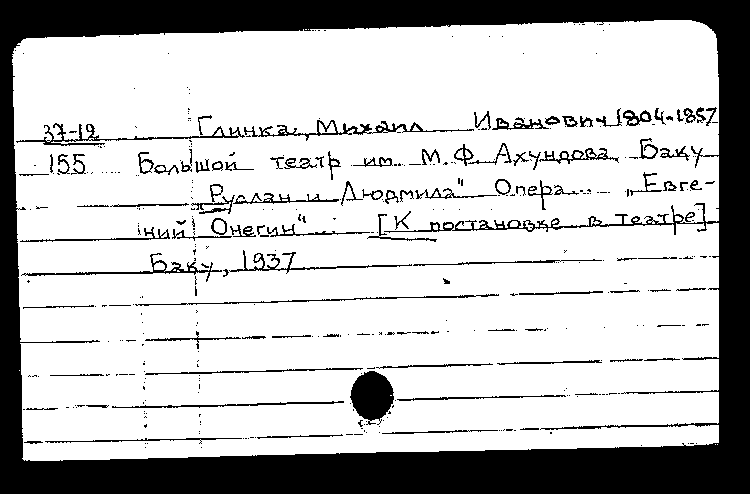 37-12 Глинка, Михаил Иванович 1804-1857
155 Большой театр им. М.Ф. Ахундова, Баку
„Руслан и Людмила“ Опера... „Евге-
ний Онегин“... [К постановке в театре]
Баку, 1937